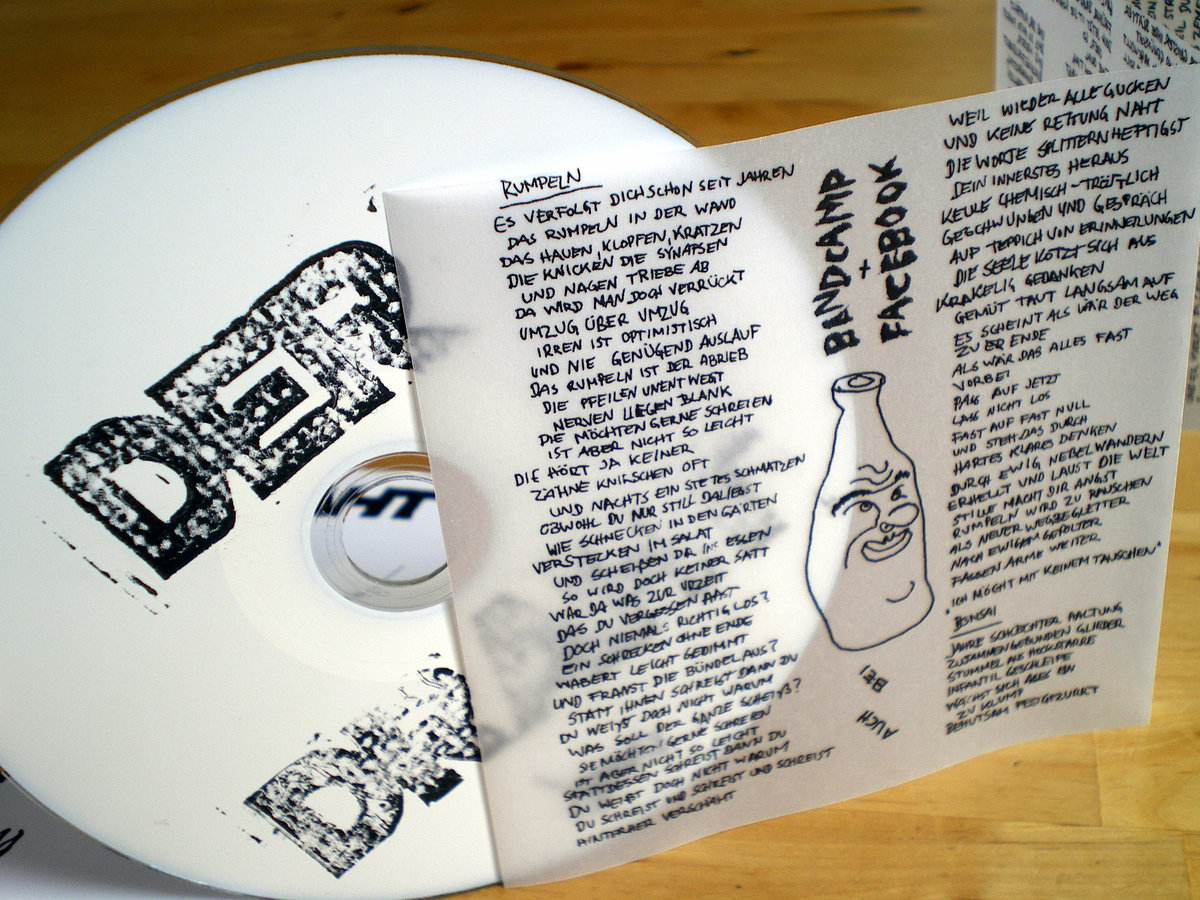 DER
HT
RUMPELN
ES VERFOLGT DICH SCHON SEIT JAHREN
DAS RUMPELN IN DER WAND
DAS HAUEN, KLOPFEN, KRATZEN
DIE KNICKEN DIE SYNAPSEN
UND NAGEN TRIEBE AB
DA WIRD MAN DOCH VERRÜCKT
UMZUG ÜBER UMZUG
IRREN IST OPTIMISTISCH
UND NIE GENÜGEND AUSLAUF
DAS RUMPELN IST DER ABRIEB
DIE PFEILEN UNENTWEGT
NERVEN LIEGEN BLANK
DIE MÖCHTEN GERNE SCHREIEN
IST ABER NICHT SO LEICHT
DIE HÖRT JA KEINER
ZÄHNE KNIRSCHEN OFT
UND NACHTS EIN STETES SCHMATZEN
OBWOHL DU NUR STILL DALIEGST
WIE SCHNECKEN IN DEN GÄRTEN
VERSTECKEN IM SALAT
UND SCHEIßEN DIR INS ESSEN
SO WIRD DOCH KEINER SATT
WAR DA WAS ZUR URZEIT
DAS DU VERGESSEN HAST
DOCH NIEMALS RICHTIG LOS?
EIN SCHRECKEN OHNE ENDE
WABERT LEICHT GEDIMMT
UND FRANST DIE BÜNDEL AUS?
STATT IHNEN SCHREIST DANN DU
DU WEIßT DOCH NICHT WARUM
WAS SOLL DER GANZE SCHEIß?
SIE MÖCHTEN GERNE SCHREIEN
IST ABER NICHT SO LEICHT
STATTDESSEN SCHREIST DANN DU
DU WEIßT DOCH NICHT WARUM
DU SCHREIST UND SCHREIST UND SCHREIST
HINTERHER VERSCHÄMT
BANDCAMP
+
FACEBOOK
AUCH BEI
WEIL WIEDER ALLE GUCKEN
UND KEINE RETTUNG NAHT
DIE WORTE SPLITTERN HEFTIGST
DEIN INNERSTES HERAUS
KEULE CHEMISCH-TREFFLICH
GESCHWUNGEN UND GESPRÄCH
AUF TEPPICH VON ERINNERUNGEN
DIE SEELE KOTZT SICH AUS
KRAKELIG GEDANKEN
GEMÜT TAUT LANGSAM AUF
ES SCHEINT ALS WÄR DER WEG
ZU ENDE
ALS WÄR DAS ALLES FAST
VORBEI
PASS AUF JETZT
LASS NICHT LOS
FAST AUF FAST NULL
UND STEH DAS DURCH
HARTES KLARES DENKEN
DURCH EWIG NEBELWANDERN
ERHELLT UND LAUST DIE WELT
STILLE MACHT DIR ANGST
RUMPELN WIRD ZU RAUSCHEN
ALS NEUER WEGBEGLEITER
NACH EWIGEM GEPOLTER
FASSEN ARME WEITER
"ICH MÖCHT MIT KEINEM TAUSCHEN"
BONSAI
JAHRE SCHLECHTER HALTUNG
ZUSAMMENGEBUNDEN GLIEDER
STUMMEL ALS HOCKSTARRE
INFANTIL GESCHLEIFE
WÄCHST SICH ALLES EIN
ZU KLUMP
BEHUTSAM FESTGEZURRT